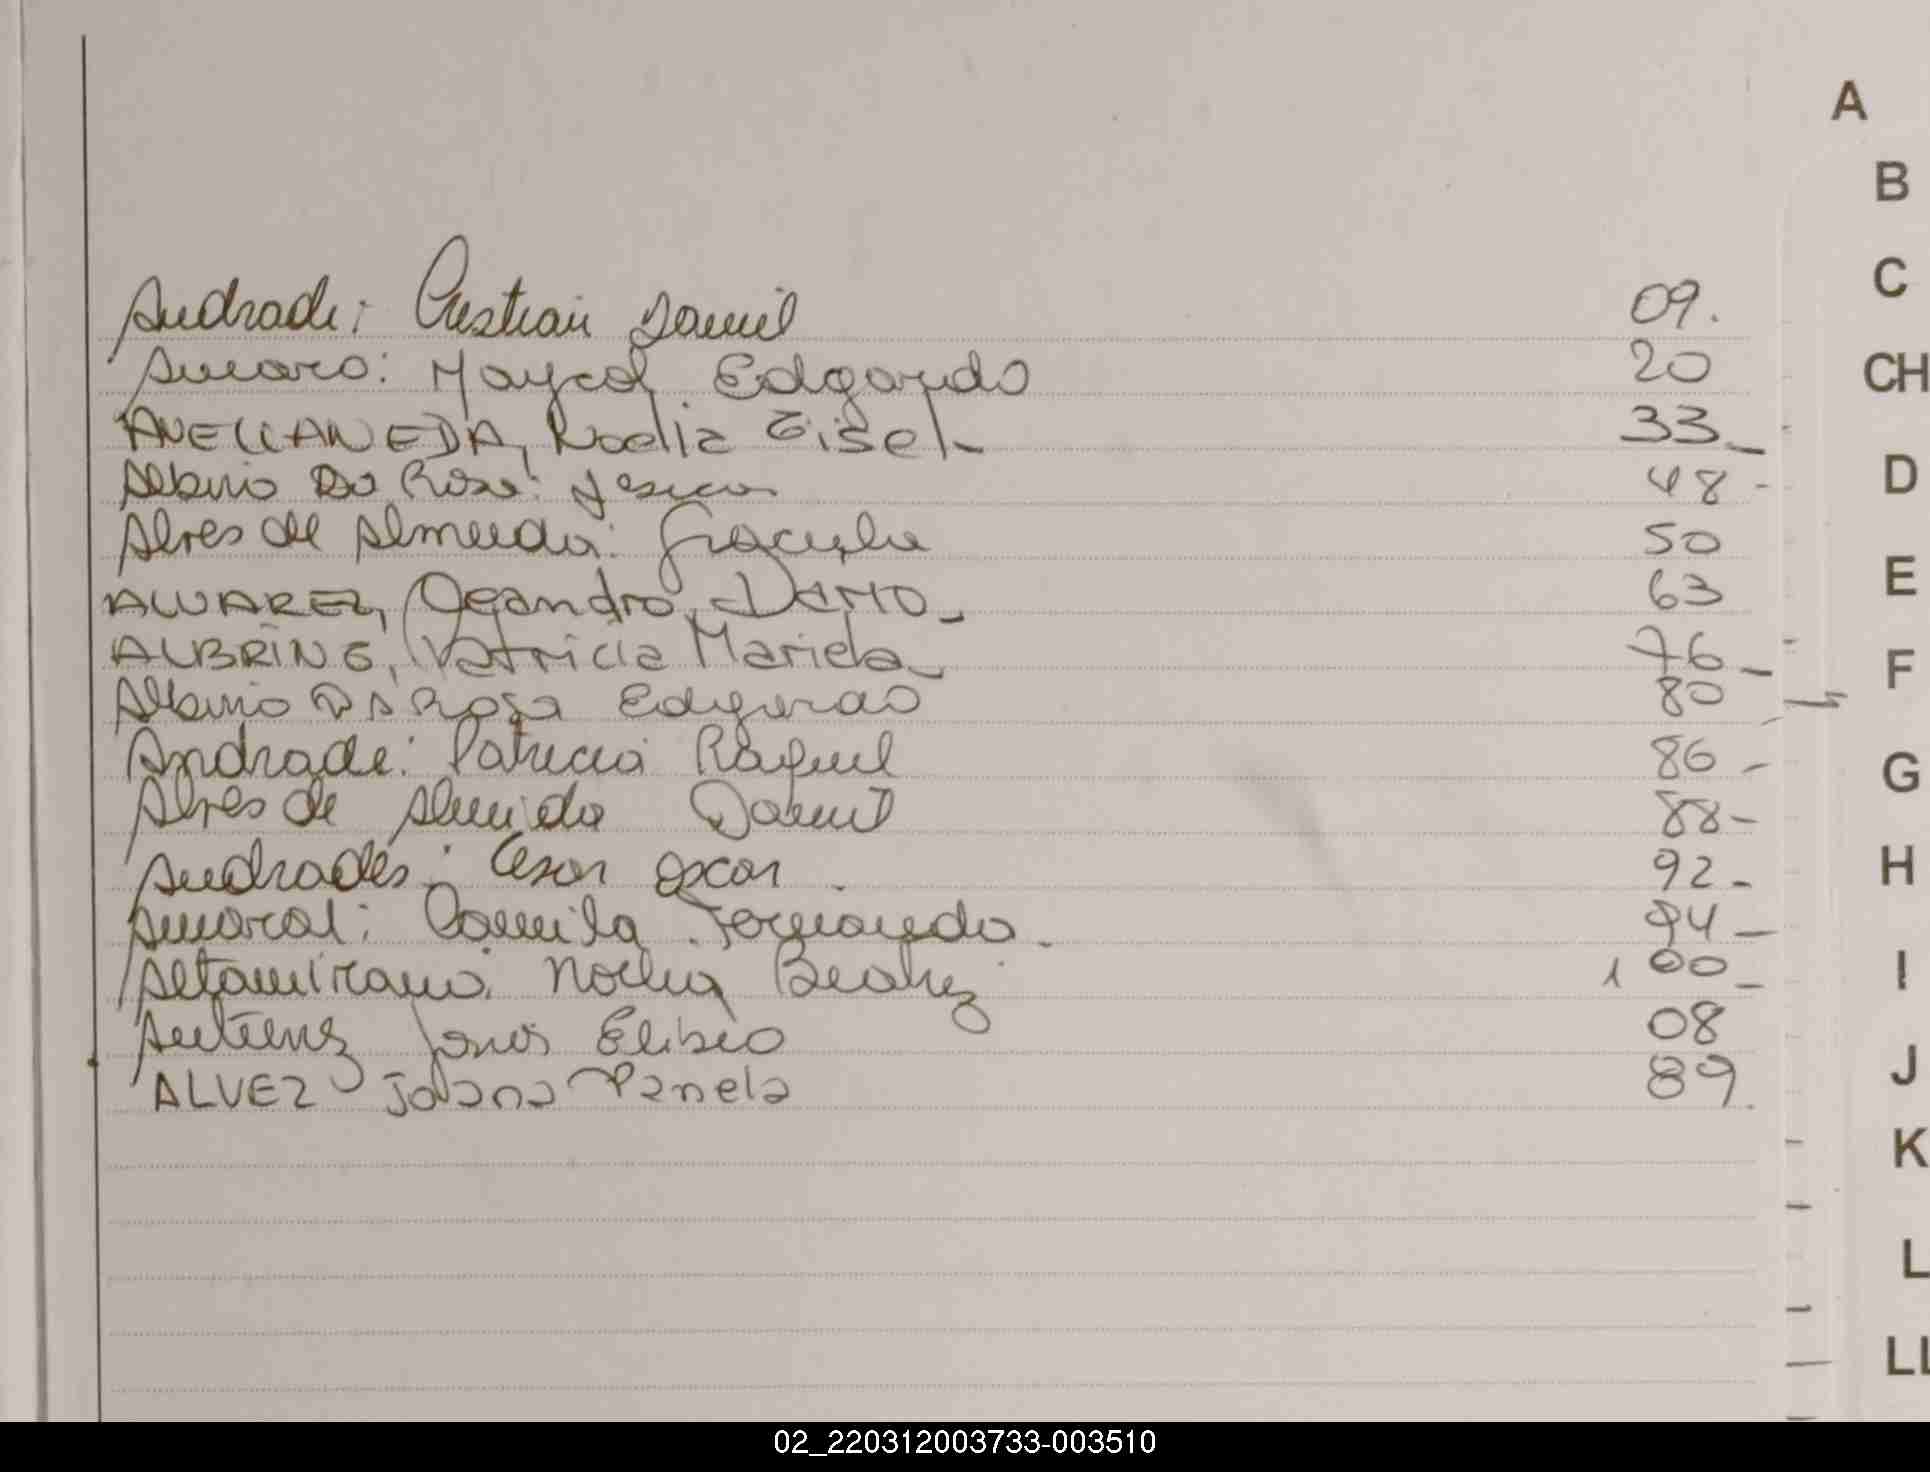 Andrade: Cristian Daniel 09.
Amaro: Maycol Edgardo 20
AVELLANEDA, Noelia Gisel- 33-
Albino Da Rosa: Jesica 48-
Alves de Almeida: Graciela 50
ALVAREZ, Leandro Dario- 63
ALBRING, Patricia Mariela- 76-
Albino DA Rosa Edgardo 80
Andrade: Patricia Raquel 86-
Alves de Almeida Daniel 88-
Andrades: Cesar Oscar. 92-
Amaral: Camila Fernanda. 94-
Altamirano. Noelia Beatriz 100-
Antunez Jonas Elibio 08
ALVEZ Joana Pamela 89.
A
B
C
CH
D
E
F
G
H
I
J
K
L
LL
02_220312003733-003510